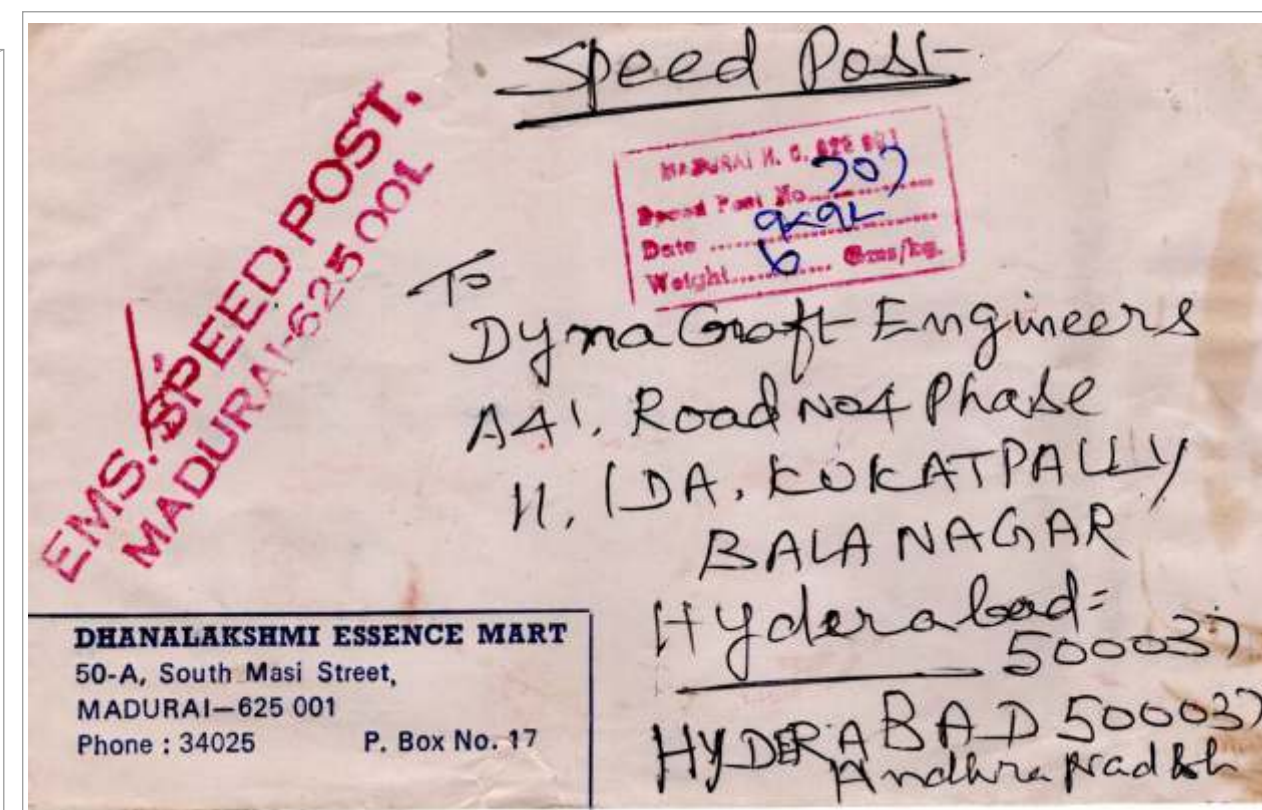 Speed Post
EMS. SPEED POST.
MADURAI-625 001
MADURAI H. O. 625 001
Speed Post No. 707
Date
Weight 6 Gms/kg.
To
Dyna Craft Engineers
A41, Road No4 Phase
II, IDA. KUKATPALLY
BALANAGAR
Hyderabad=
500037
HYDERABAD 500037
Andhra Pradesh
DHANALAKSHMI ESSENCE MART
50-A, South Masi Street,
MADURAI—625 001
Phone : 34025 P. Box No. 17